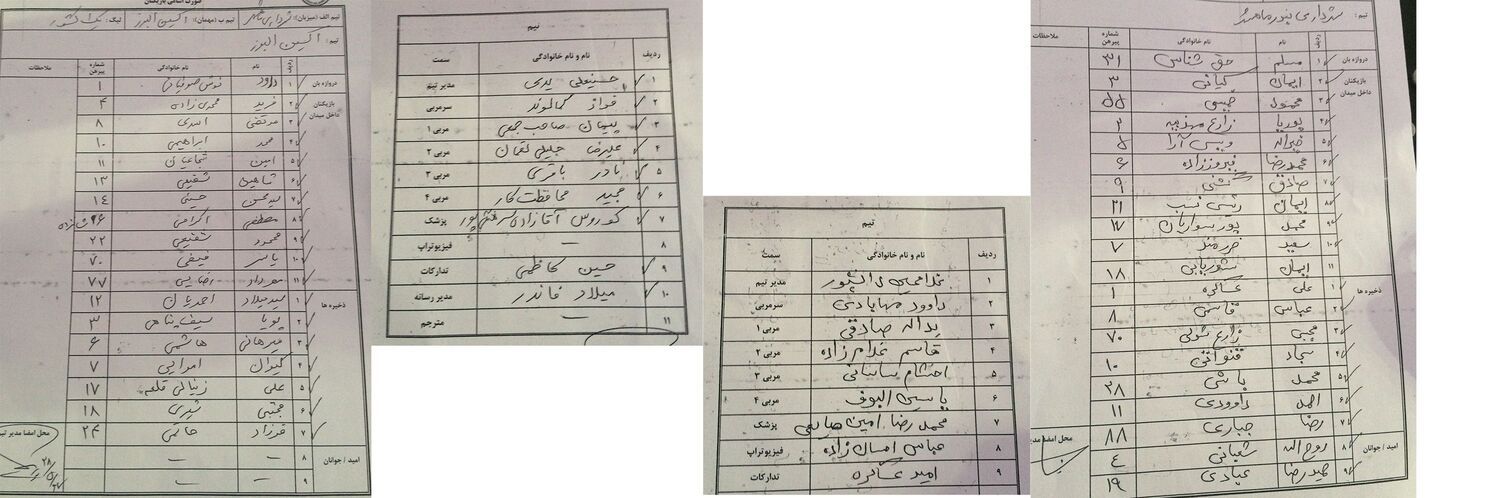 فورت اسامی بازیکنان
تیم الف (میزبان): شهرداری ماهشهر تیم ب (مهمان): اکسین البرز لیگ: یک کشور
تیم: اکسین البرز
ردیف نام نام خانوادگی شماره پیرهن ملاحظات
دروازه بان ۱ داود نوشی صوفیانی ۱
بازیکنان داخل میدان ۲ فرید محمدی زاده ۴
۳ مرتضی اسدی ۸
۴ محمد ابراهیمی ۱۰
۵ امین شجاعیان ۱۱
۶ شاهین شفیعی ۱۳
۷ سید محسن حسینی ۱۴
۸ مصطفی اکرامی ۹۶
۹ محمود شفیعی ۲۲
۱۰ یاسر فیضی ۷۰
۱۱ مهرداد رضایی ۷۷
ذخیره ها ۱ سید میلاد احمدیان ۱۲
۲ پویا سیف پناهی ۳
۳ میرهانی هاشمی ۶
۴ امرایی ۷
۵ علی زینالی قلعه ۱۷
۶ مجتبی شیری ۱۸
۷ فرزاد حاتمی ۲۴
امید / جوانان ۸ – –
۹ – –
محل امضا مدیر تیم
تیم
ردیف نام و نام خانوادگی سمت
۱ حسینعلی مدیر تیم
۲ فواز کمالوند سرمربی
۳ پیمان صاحب جمعی مربی ۱
۴ علیرضا جلیلی لقمان مربی ۲
۵ یاور باقری مربی ۳
۶ مجید محافظت کار مربی ۴
۷ کوروش آقازادی پزشک
۸ – فیزیوتراپ
۹ حسین کاظمی تدارکات
۱۰ میلاد قائدر مدیر رسانه
۱۱ – مترجم
تیم
ردیف نام و نام خانوادگی سمت
۱ غلامعباس دانشپور مدیر تیم
۲ داوود مهابادی سرمربی
۳ یداله صادقی مربی ۱
۴ قاسم غلام زاده مربی ۲
۵ احتشام ساسانی مربی ۳
۶ یاسین البوف مربی ۴
۷ محمد رضا امین صانعی پزشک
۸ عباس امساک زاده فیزیوتراپ
۹ امید عساکره تدارکات
تیم: شهرداری بندر ماهشهر
ردیف نام نام خانوادگی شماره پیرهن ملاحظات
دروازه بان ۱ مسلم حق شناس ۳۱
بازیکنان داخل میدان ۲ ایمان کیانی ۳
۳ محمود حبیبی ۵۵
۴ پوریا زارع مهذبیه ۲
۵ خیراله ویسی آرا ۵
۶ محمدرضا فیروززاده ۶
۷ صادق گشنی ۹
۸ ایمان رئیسی نسب ۲۱
۹ محمد پور سواریان ۱۷
۱۰ سعید خرمند ۷
۱۱ ایمان شوریابی ۱۸
ذخیره ها ۱ علی عساکره ۱
۲ عباس قاسمی ۸
۳ مجتبی زارع شولی ۷۰
۴ سجاد قنواتی ۱۰
۵ محمد باشی ۲۸
۶ احمد داوودی ۱۱
۷ رضا جباری ۸۸
امید / جوانان ۸ روح اله شعبانی ۴
۹ حمیدرضا عبادی ۱۹
محل امضا مدیر